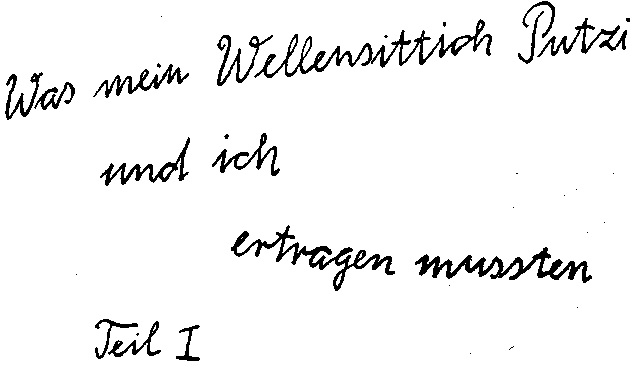 Was mein Wellensittich Putzi
und ich
ertragen mussten
Teil I